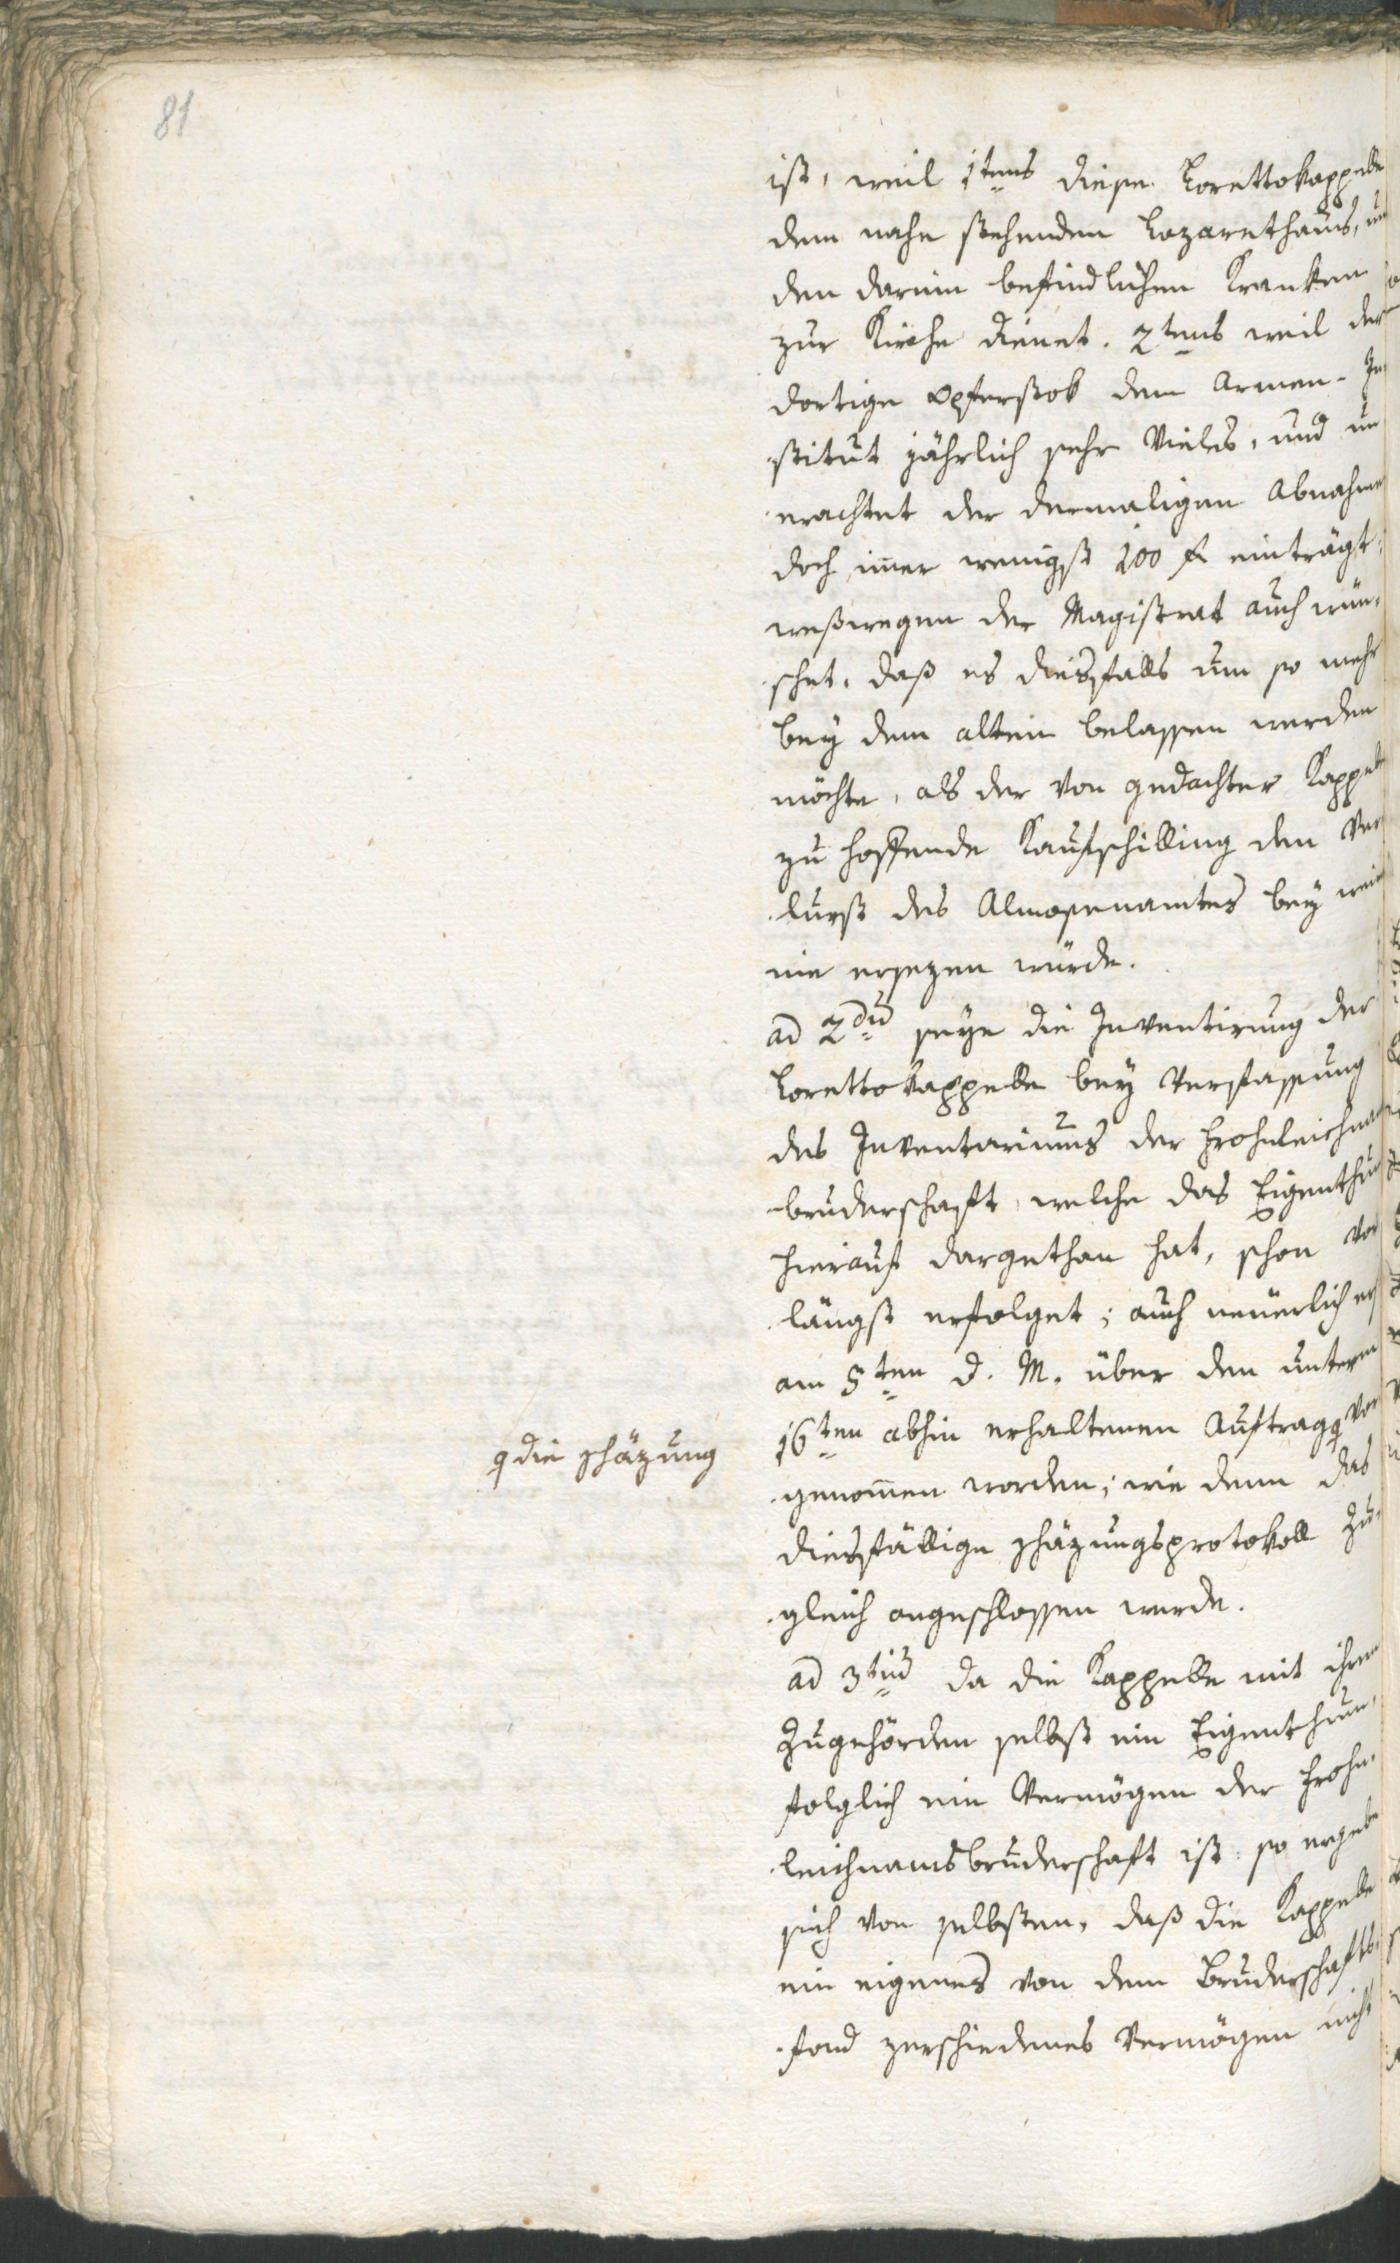 81
ist, weil 1tens diese Lorettokappelle
dem nahe stehenden Lazarethaus, un
den darein befindlichen Kranken
zur Kirche dienet. 2tens weil der
dortige Opferstok dem Armen-In
stitut jährlich sehr Vieles, und un
erachtet der dermaligen Abnahme
doch imer wenigst 100 f einträgt:
weßwegen der Magistrat auch wün-
schet, daß es diesfalls um so mehr
bey dem altem belassen werden
möchte, als der von gedachter Kappelle
zu hoffende Kaufschilling den Ver
lurst des Almosenamtes bey weit
nie ersezen würde.
ad 2dũ seye die Inventirung der
Lorettokappelle bey Verfassung
des Inventariums der Frohnleichnam
bruderschaft, welche das Eigenthum
hierauf dargethan hat, schon vor
längst erfolget; auch neuerlich erst
am 5ten d. M. über den unterm
16ten abhin erhaltenen Auftrag vor
die Schäzung
genomen worden; wie denn das
diesfällige Schäzungsprotokoll zu-
gleich angeschlossen werde.
ad 3tiũ da die Kappelle mit ihren
Zugehörden selbst ein Eigenthum,
folglich ein Vermögen der Frohn-
leichnamsbruderschaft ist: so ergebe
sich von selbsten, daß die Kappelle
ein eigenes von dem Bruderschafts-
fond zerschiedenes Vermögen nicht